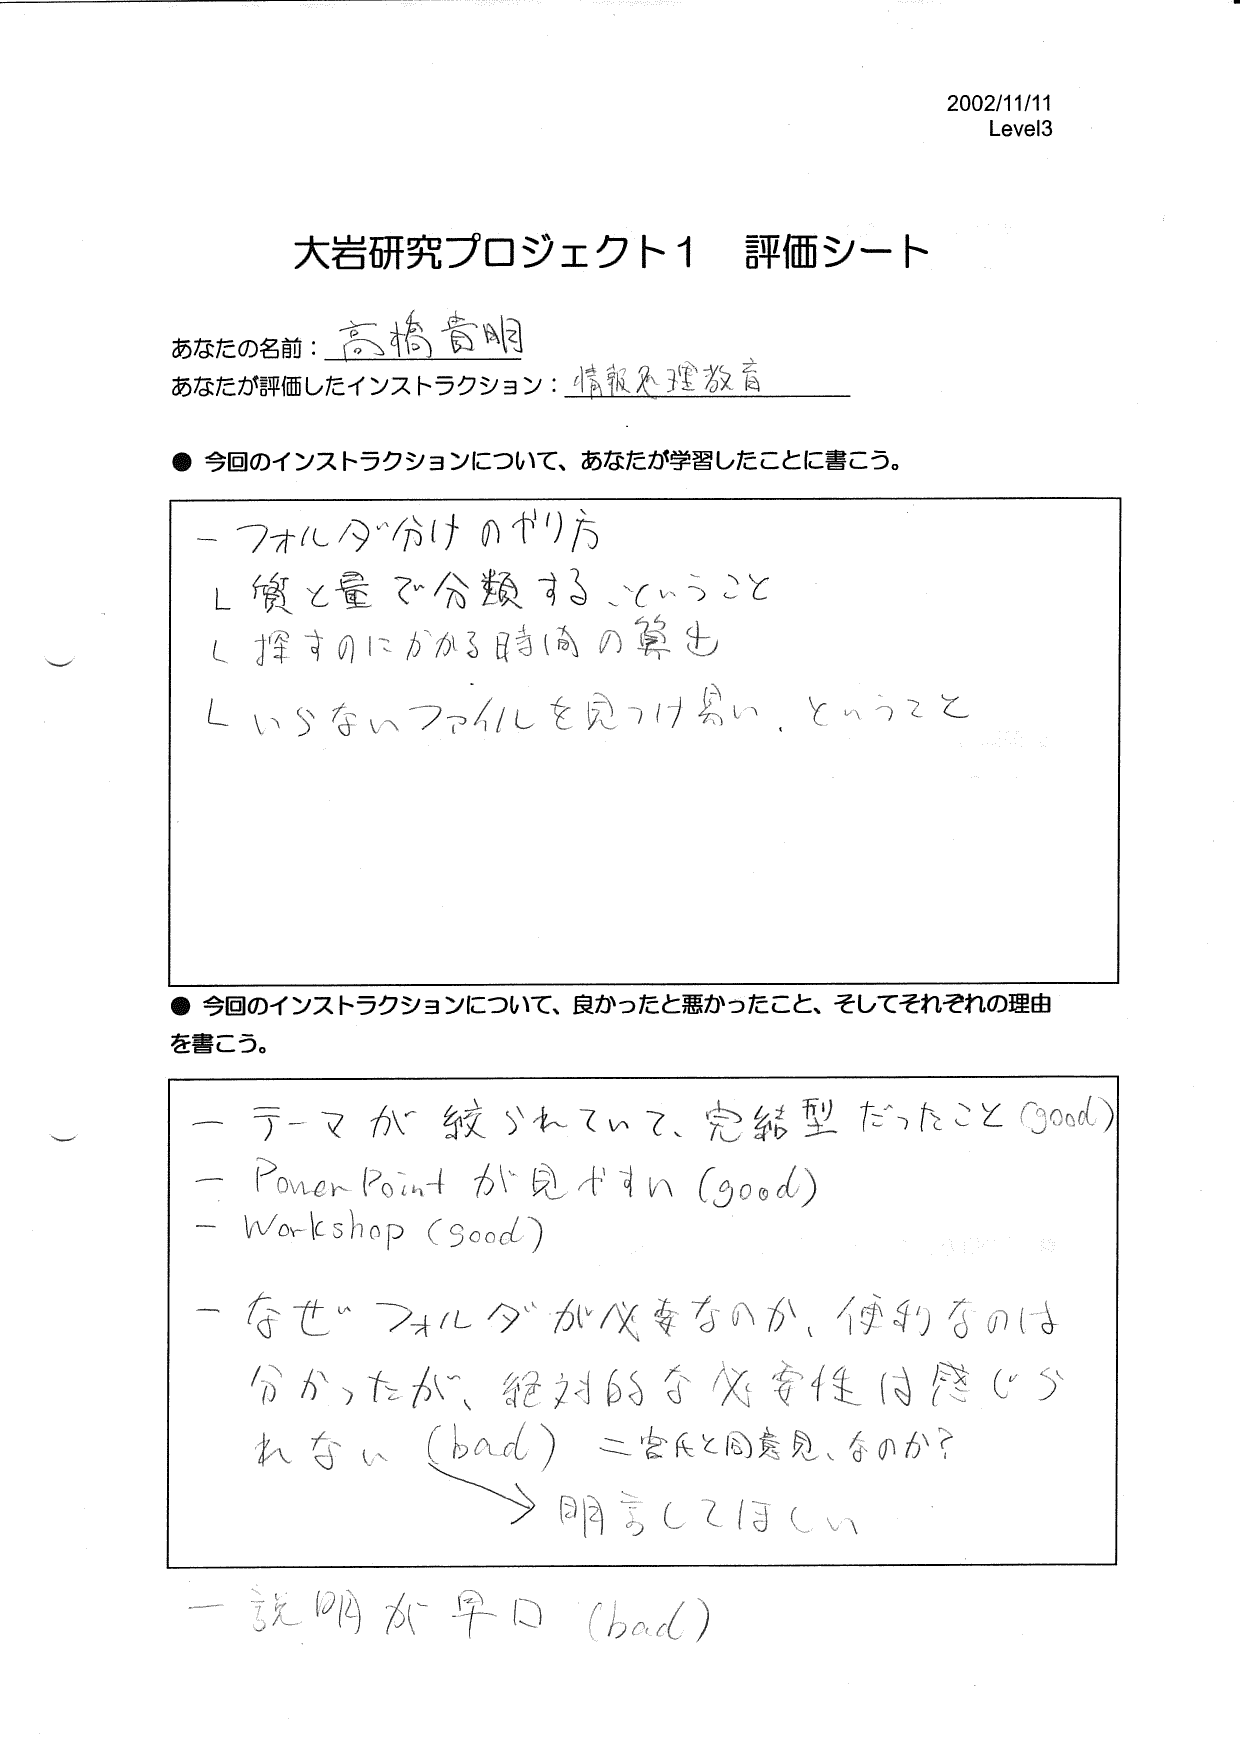 2002/11/11
Level3
大岩研究プロジェクト1　評価シート
あなたの名前：高橋貴明
あなたが評価したインストラクション：情報処理教育
● 今回のインストラクションについて、あなたが学習したことに書こう。
－フォルダ分けのやり方
L 質と量で分類する、ということ
L 探すのにかかる時間の算出
L いらないファイルを見つけ易い、ということ
● 今回のインストラクションについて、良かったと悪かったこと、そしてそれぞれの理由
を書こう。
－ テーマが絞られていて、完結型だったこと(good)
－ PowerPointが見やすい(good)
－ Workshop (good)
－ なぜフォルダが必要なのか、便利なのは
分かったが、絶対的な必要性は感じら
れない (bad) 二宮氏と同意見、なのか?
→ 明言してほしい
－ 説明が早口 (bad)